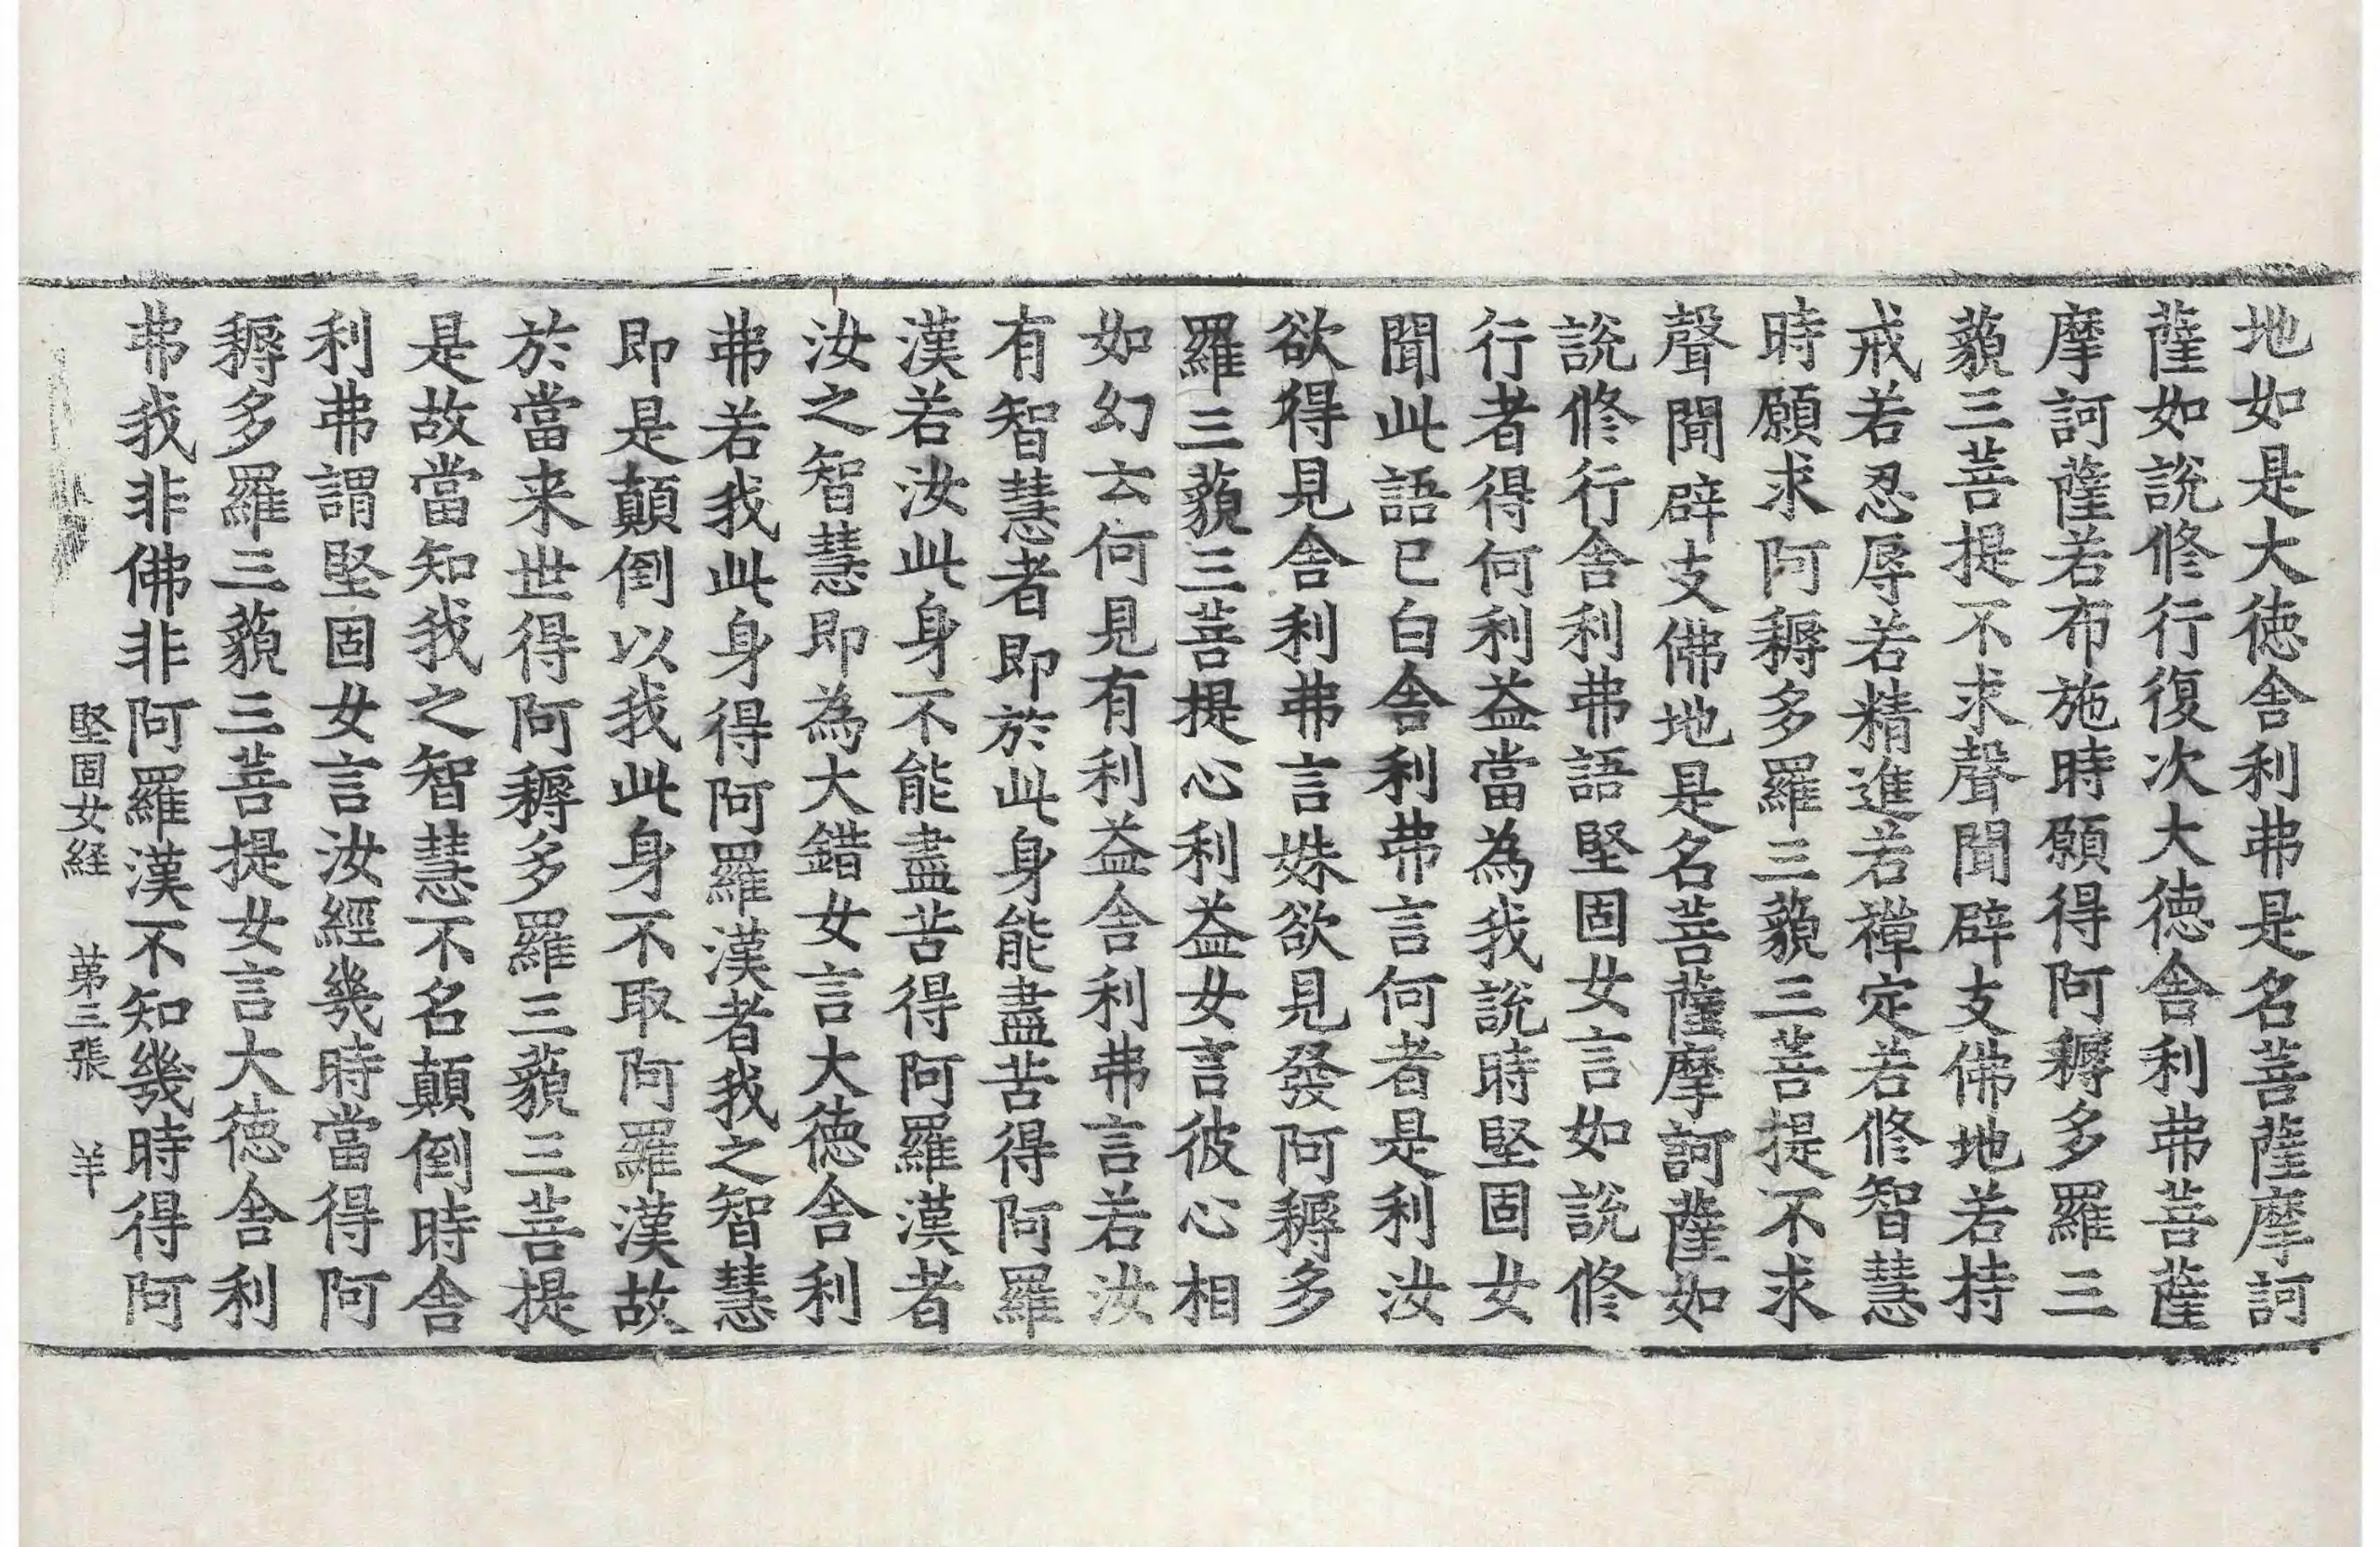 地如是大德舎利弗是名菩薩摩訶
薩如説修行復次大德舎利弗菩薩
摩訶薩若布施時願得阿耨多羅三
藐三菩提不求聲聞辟支佛地若持
戒若忍辱若精進若禪定若修智慧
時願求阿耨多羅三藐三菩提不求
聲聞辟支佛地是名菩薩摩訶薩如
説修行舎利弗語堅固女言如説修
行者得何利益當為我説時堅固女
聞此語已白舎利弗言何者是利汝
欲得見舎利弗言姝欲見發阿耨多
羅三藐三菩提心利益女言彼心相
如幻云何見有利益舎利弗言若汝
有智慧者即於此身能盡苦得阿羅
漢若汝此身不能盡苦得阿羅漢者
汝之智慧即為大錯女言大德舎利
弗若我此身得阿羅漢者我之智慧
即是顛倒以我此身不取阿羅漢故
於當来世得阿耨多羅三藐三菩提
是故當知我之智慧不名顛倒時舎
利弗謂堅固女言汝經幾時當得阿
耨多羅三藐三菩提女言大德舎利
弗我非佛非阿羅漢不知幾時得阿
堅固女経 苐三張 羊